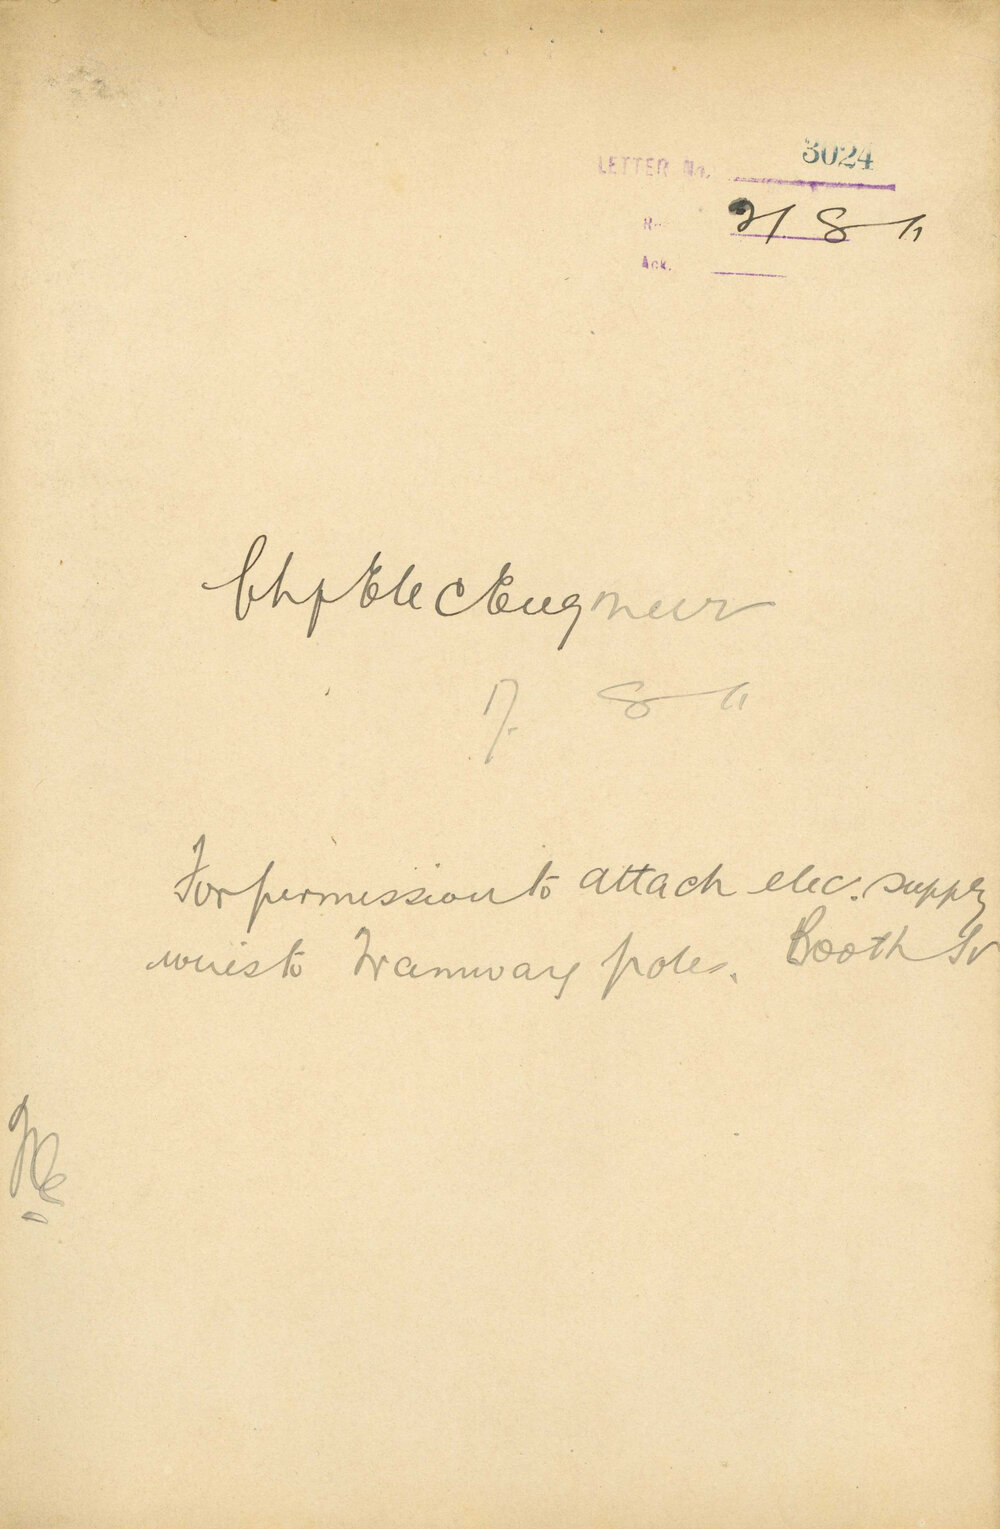 LETTER No. 3024
21 8 11
Ack.
Chf Elec Engineer
17. 8 11
For permission to attach elec. supply
wires to Tramway poles. Booth St